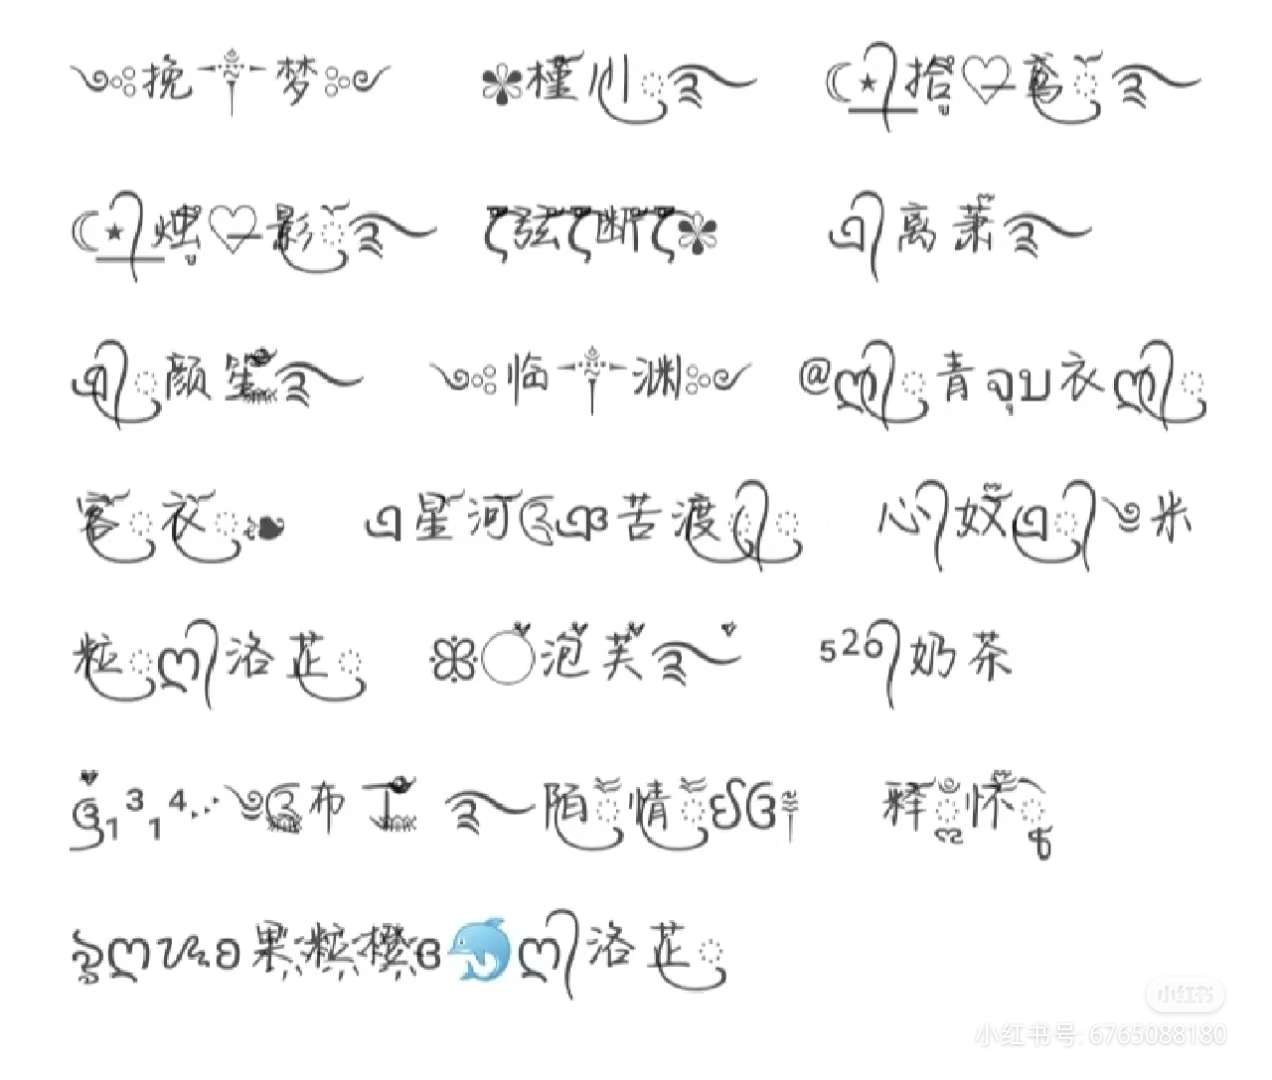 挽 梦 槿川 拾♡鸢
☾★烛♡影 弦断 离萧
颜笙 临 渊 @ღ青 衣ღ
客衣 星河 苦渡 心奴 米
粒ღ洛芷 泡芙 ⁵²⁰奶茶
₁³₁⁴ 布丁 陌情 释怀
ღ 果粒橙 🐬ღ洛芷
小红书
小红书号: 6765088180